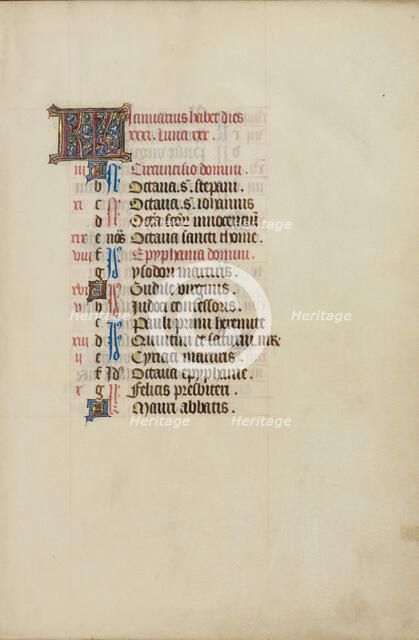 KL Ianuarius habet dies
xxxi. luna xxx.
iii A N. Circuncisio domini.
b Octaua. s. stepani.
xi c N. Octaua. s. iohannis
d Octa sctor innocenciu
xix e nos Octaua sancti thome.
viii f Epyphania domini.
g ysodori martiris.
xvi A N. Gudile virginis.
v b Iudoci confessoris.
c Pauli primi heremite
xiii d Quintini et saturni mr
ii e Ciriaci martiris.
f Id Octaua epyphanie.
x g Felicis presbiteri.
A Mauri abbatis.
Heritage Heritage
Heritage Heritage